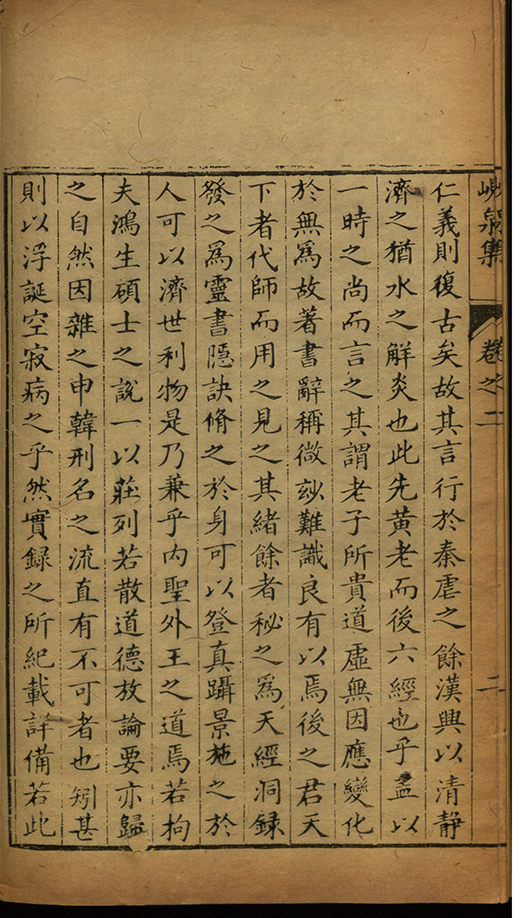 峴泉集 卷之二 二
仁義則復古矣故其言行於秦虐之餘漢興以清靜
濟之猶水之解炎也此先黃老而後六經也乎盖以
一時之尚而言之其謂老子所貴道虛無因應變化
於無爲故著書辭稱微玅難識良有以焉後之君天
下者代師而用之見之其緒餘者秘之爲天經洞録
發之爲靈書隱訣脩之於身可以登真躡景施之於
人可以濟世利物是乃兼乎内聖外王之道焉若拘
夫鴻生碩士之說一以莊列若散道德放論要亦歸
之自然因雜之申韓刑名之流直有不可者也矧甚
則以浮誕空寂病之乎然實録之所紀載詳備若此